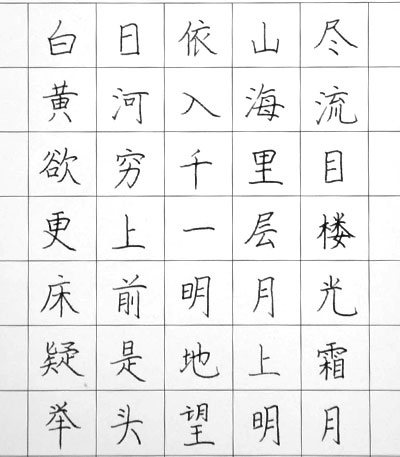 白日依山尽
黄河入海流
欲穷千里目
更上一层楼
床前明月光
疑是地上霜
举头望明月